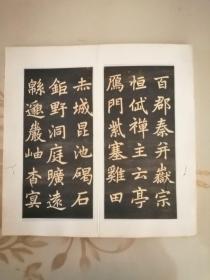 百郡秦并嶽宗
恒岱禅主云亭
鴈門紫塞雞田
赤城昆池碣石
鉅野洞庭曠遠
緜邈巖岫杳冥